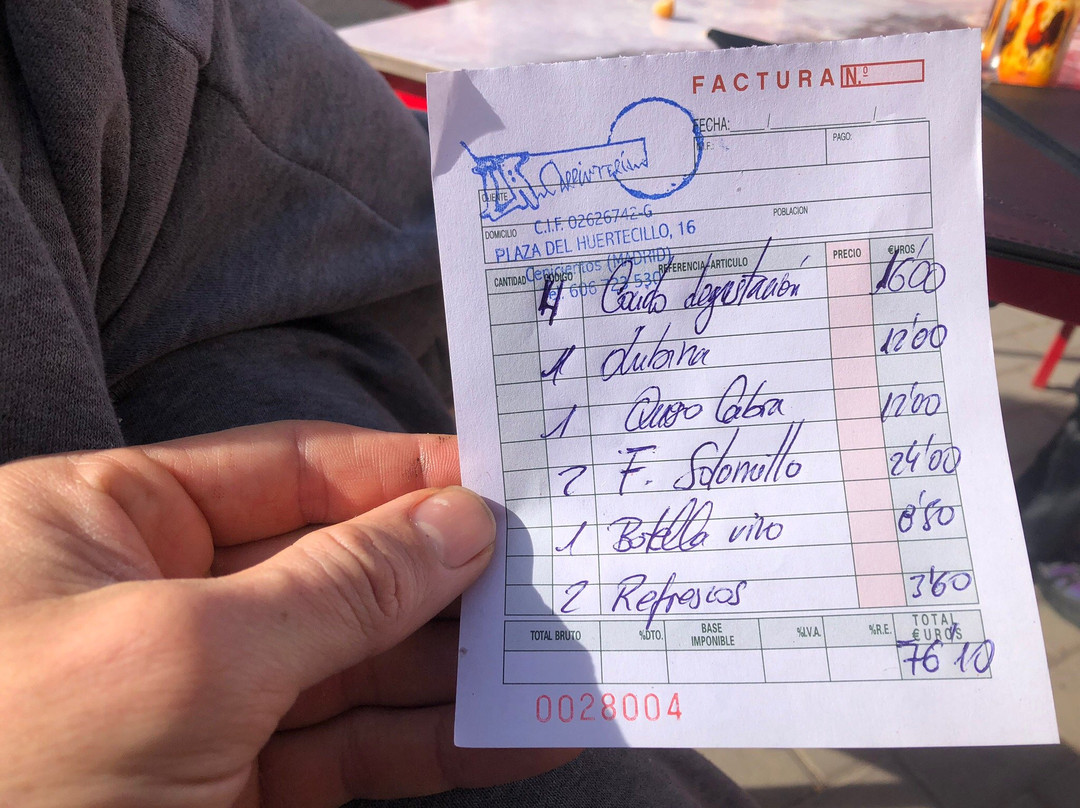 FACTURA N.º
FECHA: / /
N.I.F.:
PAGO:
CLIENTE
C.I.F. 02626742-G
DOMICILIO
POBLACION
PLAZA DEL HUERTECILLO, 16
Cenicientos (MADRID)
CANTIDAD CODIGO REFERENCIA/ARTICULO PRECIO €UROS
4 degustación 16'00
1 Lubina 12'00
1 Queso Cabra 12'00
2 F. Solomillo 24'00
1 Botella vino 8'50
2 Refrescos 3'60
TOTAL BRUTO %DTO. BASE IMPONIBLE %I.V.A. %R.E. TOTAL €UROS
76'10
0028004